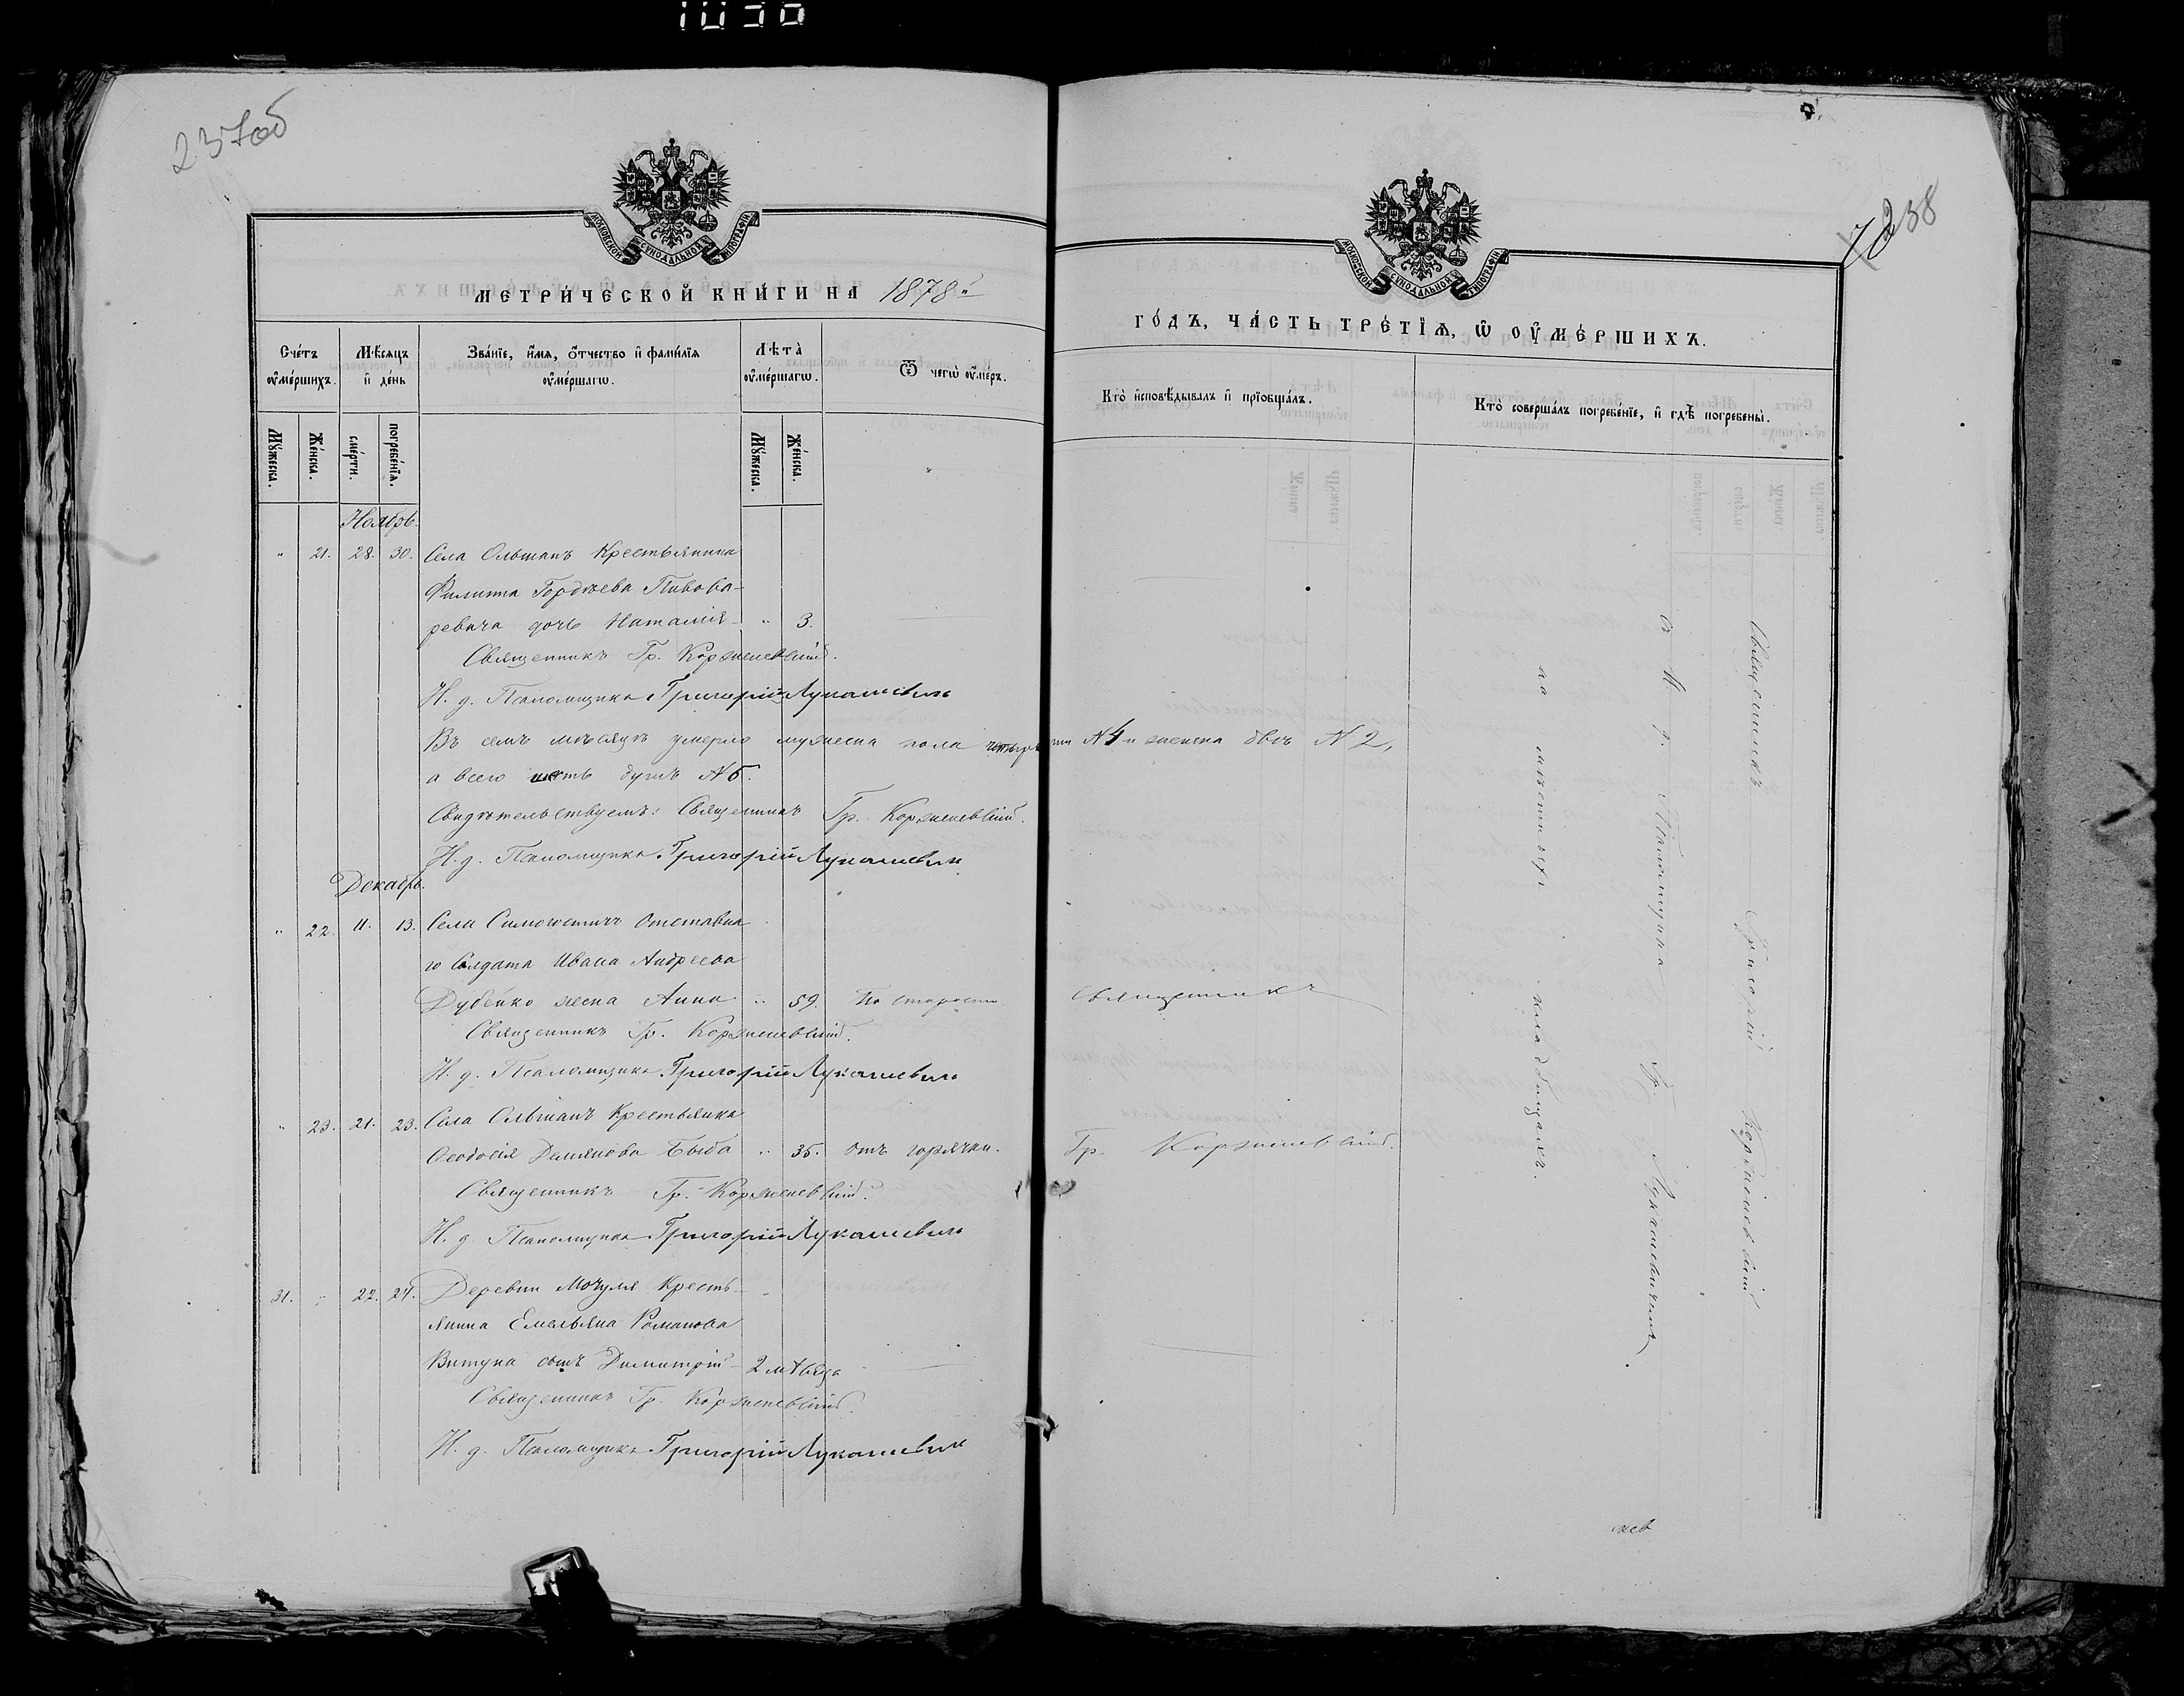 1030
237об
МОСКОВСКОЙ СѴНОДАЛЬНОЙ ТИПОГРАФІИ
МЕТРИ́ЧЕСКОЙ КНИ́ГИ НА 1878й
Сче́тъ ᲂу҆ме́ршихъ.
Мѣ́сяцъ и҆ де́нь
Зва́нїе, и҆́мя, ѻ҆́тчество и҆ фами́лїя ᲂу҆ме́ршагѡ.
Лѣта̀ ᲂу҆ме́ршагѡ.
Ѿ чегѡ̀ ᲂу҆́меръ.
Мꙋ́жеска.
Же́нска.
сме́рти.
погребе́нїя.
Мꙋ́жеска.
Же́нска.
Ноябрь.
" 21. 28. 30. Села Ольшанъ Крестьянина
Филиппа Гордѣева Пивова-
ревича дочь Наталія " 3.
Священникъ Гр. Корженевскій.
И. д. Псаломщика Григорій Лукашевичъ
Въ семъ мѣсяцѣ умерло мужеска пола четыре № 4 и женска двѣ № 2,
а всего шесть душъ № 6.
Свидѣтельствуемъ: Священникъ Гр. Корженевскій.
И. д. Псаломщика Григорій Лукашевичъ
Декабрь.
" 22. 11. 13. Села Симоновичъ Отставна
го Солдата Ивана Андреева
Дубейко жена Анна " 59. По старости
Священникъ Гр. Корженевскій.
И. д. Псаломщика Григорій Лукашевичъ
" 23. 21. 23. Села Ольшанъ Крестьянка
Ѳеодосія Демянова Быба " 35. отъ горячки.
Священникъ Гр. Корженевскій.
И. д. Псаломщика Григорій Лукашевичъ
31. " 22. 24. Деревни Мочуля Кресть-
янина Емельяна Романова
Витуна сынъ Димитрій 2 мѣсяца
Священникъ Гр. Корженевскій.
И. д. Псаломщика Григорій Лукашевичъ
238
МОСКОВСКОЙ СѴНОДАЛЬНОЙ ТИПОГРАФІИ
ГО́ДЪ, ЧА́СТЬ ТРЕ́ТЇѦ, Ѡ҆ ОУ҆МЕ́РШИХЪ.
Кто̀ и҆сповѣ́дывалъ и҆ прїобща́лъ.
Кто̀ соверша́лъ погребе́нїе, и҆ гдѣ̀ погребены̀.
Священникъ
Гр. Корженевскій.
Священникъ Григорій Корженевскій
съ И. д. Псаломщика Гр. Лукашевичемъ
на мѣстныхъ кладбищахъ.